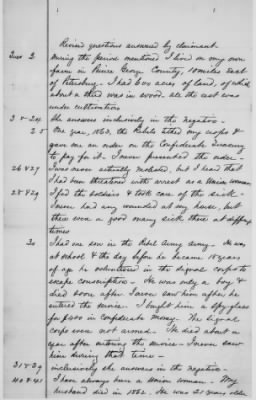 Revised questions answered by claimant.
Ques 2 During the period mentioned I lived on my own
farm in Prince George County, 10 miles East
of Petersburg. I had 600 acres of land, of which
about a third was in wood. all the rest was
under cultivation
3 & 24 She answers inclusively in the negative.
25 One year, 1863, the Rebels tithed my crops &
gave me an order on the Confederate Treasury
to pay for it. I never presented the order.
26 & 27 I was never actually molested, but I heard that
I had been threatened with arrest as a Union woman
28 & 29 I fed the soldiers & took care of the sick.
I never had any wounded at my house, but
there were a good many sick there at different
times
30 I had one son in the Rebel Army. He was
at school & the day before he became 18 years
of age he volunteered in the signal corps to
escape conscription. He was only a boy &
died soon after. I never saw him after he
entered the service. I bought him a spy glass
for $200 in confederate money. The signal
corps were not armed. He died about a
year after entering the service. I never saw
him during that time.
31 & 39 inclusively she answers in the negative.
40 & 41 I have always been a Union woman. My
husband died in 1862. He was 21 years older